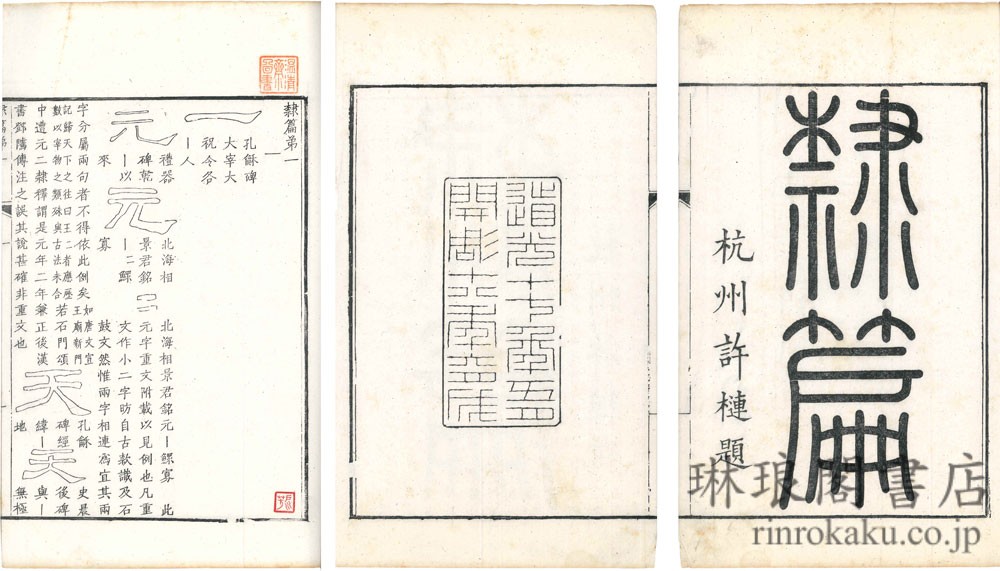 隸篇
杭州許槤題
道光十七年
開彫十八年
隸篇第一
一
一
孔龢碑
大宰大
祝令各
一人
元
禮器
碑乾
｜以
來
元
北海相
景君銘
｜二鰥
寡
二
北海相景君銘元｜鰥寡 此
元字重文附載以見例也凡重
文作小二字昉自古款識及石
鼓文然惟兩字相連為宜其兩
字分屬兩句者不得依此例矣如唐文宣王廟新門
記歸天下之往曰王二者應歷
數以宰物之類殊與古法未合若石門頌
中遭元二隸釋謂是元年二年兼正後漢
書鄧隲傳注之誤其說甚確非重文也
天
孔龢
碑經
緯｜
地
天
史晨
後碑
與｜
無極
琳琅閣書店
rinrokaku.co.jp